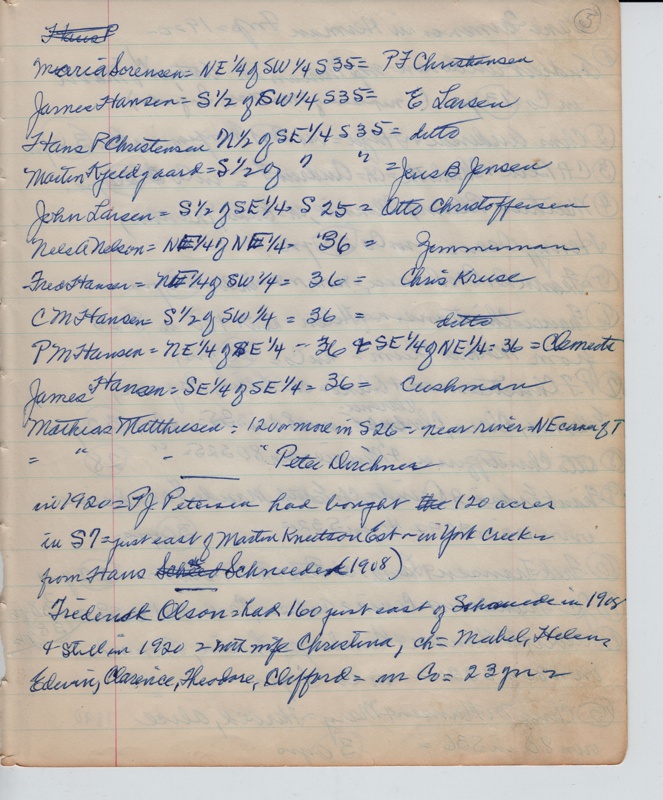 3
Hans P
Maria Sorensen = NE 1/4 of SW 1/4 S35 = P F Christiansen
James Hansen = S 1/2 of SW 1/4 S35 = E Larsen
Hans P Christensen N 1/2 of SE 1/4 S 35 = ditto
Martin Kjeldgaard = S 1/2 of " " = Jens B Jensen
John Larsen = S 1/2 of SE 1/4 = S 25 = Otto Christoffersen
Nels A Nelson = NE 1/4 of NE 1/4 = "36 = Zimmerman
Fred Hansen = NE 1/4 of SW 1/4 = 36 = Chris Kruse
C M Hansen = S 1/2 of SW 1/4 = 36 = ditto
P M Hansen = NE 1/4 of SE 1/4 - 36 & SE 1/4 of NE 1/4 = 36 = Clements
James Hansen = SE 1/4 of SE 1/4 = 36 = Cushman
Mathias Matthiesen = 120 or more in S26 - near river = NE corner of T
= " - " Peter Dirchner
in 1920 = P J Petersen had bought the 120 acres
in S7 = just east of Martin Knutson Est - in York Creek =
from Hans Schneeder (1908)
Frederick Olson = had 160 just east of in 1908
& still in 1920 = with wife Christina, ch = Mabel, Helen,
Edwin, Clarence, Theodore, Clifford = in Co = 23 yrs =